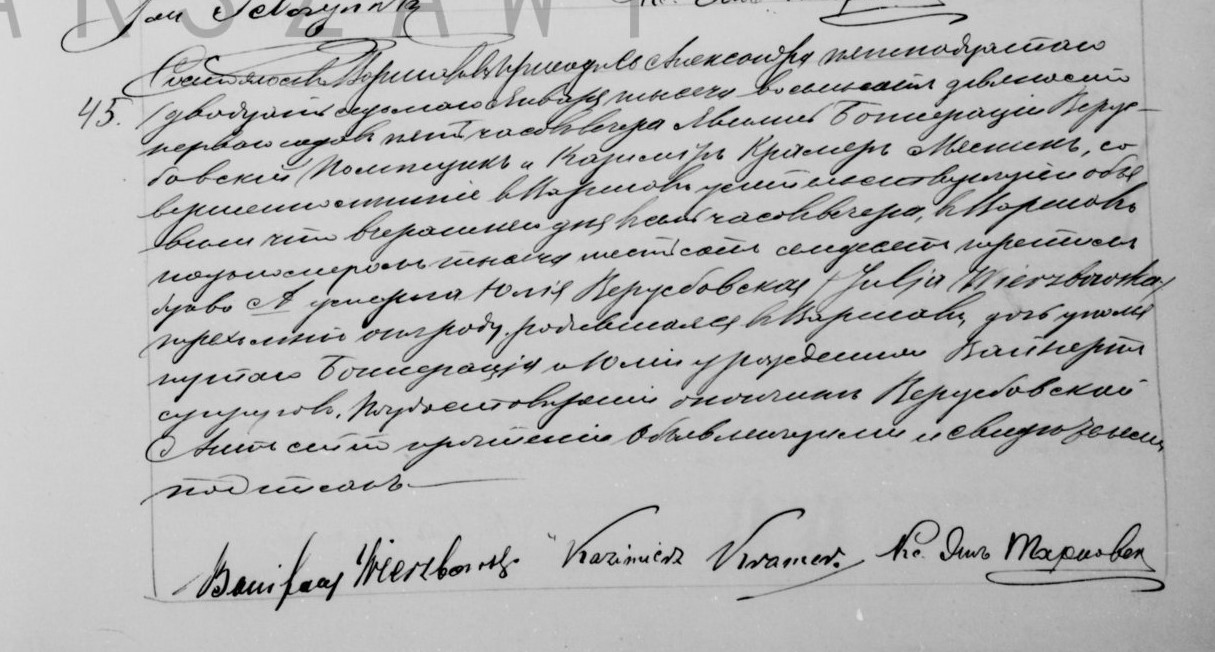 WARSZAWY
Jan
45. Состоялось въ Варшавѣ въ приходѣ Св. Александра пятнадцатаго
(двадцать седьмаго) Января тысяча восемьсотъ девяносто
перваго года въ пять часовъ вечера. Явились Бонифацій Верж-
бовскій и Казиміръ Крамеръ, со
вершеннолѣтніе въ Варшавѣ жительствующіе и объя
вили что вчерашняго дня въ часовъ вечера, въ Варшавѣ
подъ номеромъ тысяча шестьсотъ семьдесятъ третьимъ
буква А умерла Юлія Вержбовская /Julja Wierzbowska/
отъ роду, родившаяся въ Варшавѣ, дочь
Бонифація и Юліи урожденной Вайнертъ
супруговъ. По удостовѣреніи о кончинѣ Вержбовской
Актъ сей по прочтеніи объявляющими и свидѣтелями
подписанъ.
Bonifacy Wierzbowski Kazimierz Kramer. Кс. Янъ